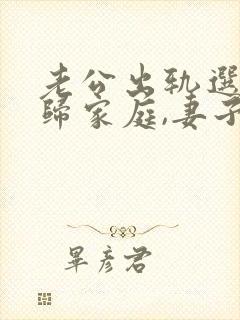 老公出轨選
歸家庭,妻子
畢彦君